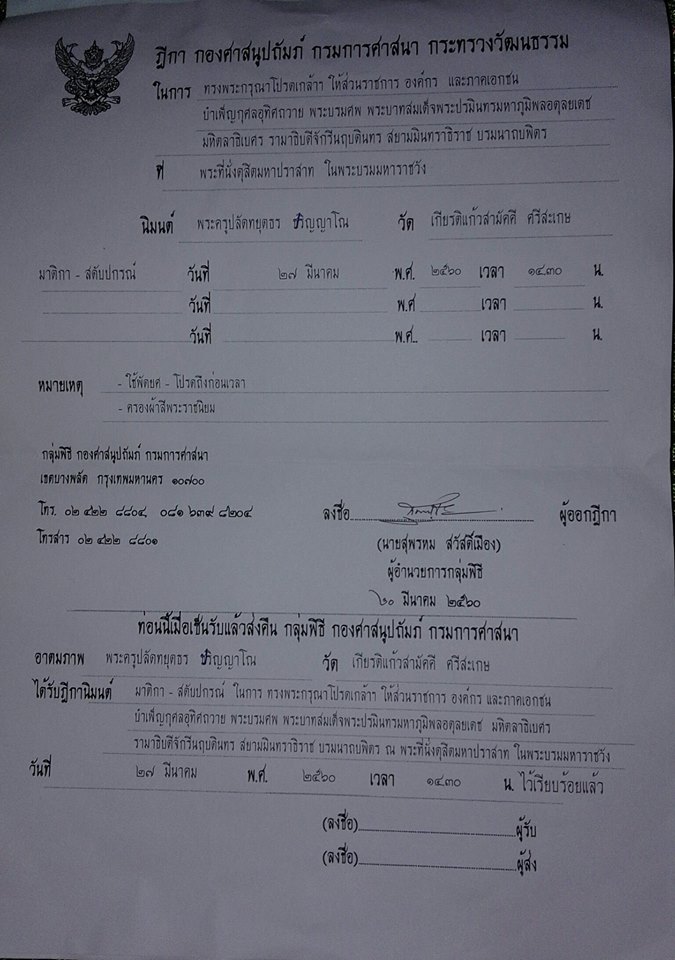 ฎีกา กองศาสนูปถัมภ์ กรมการศาสนา กระทรวงวัฒนธรรม
ในการ ทรงพระกรุณาโปรดเกล้าฯ ให้ส่วนราชการ องค์กร และภาคเอกชน
บำเพ็ญกุศลอุทิศถวาย พระบรมศพ พระบาทสมเด็จพระปรมินทรมหาภูมิพลอดุลยเดช
มหิตลาธิเบศร รามาธิบดีจักรีนฤบดินทร สยามมินทราธิราช บรมนาถบพิตร
ที่ พระที่นั่งดุสิตมหาปราสาท ในพระบรมมหาราชวัง
นิมนต์ พระครูปลัดทยุตธร วัด เกียรติแก้วสามัคคี ศรีสะเกษ
มาติกา - สดับปกรณ์ วันที่ ๒๗ มีนาคม พ.ศ. ๒๕๖๐ เวลา ๑๔.๓๐ น.
วันที่ พ.ศ. เวลา น.
วันที่ พ.ศ. เวลา น.
หมายเหตุ - ใช้พัดยศ - โปรดถึงก่อนเวลา
- ครองผ้าสีพระราชนิยม
กลุ่มพิธี กองศาสนูปถัมภ์ กรมการศาสนา
เขตบางพลัด กรุงเทพมหานคร ๑๐๗๐๐
โทร. ๐๒ ๔๒๒ ๘๘๐๔, ๐๘๑ ๖๓๙ ๘๒๐๔
ลงชื่อ ผู้ออกฎีกา
โทรสาร ๐๒ ๔๒๒ ๘๘๐๑
(นายสุพรหม สวัสดิ์เมือง)
ผู้อำนวยการกลุ่มพิธี
๒๐ มีนาคม ๒๕๖๐
ท่อนนี้เมื่อเซ็นรับแล้วส่งคืน กลุ่มพิธี กองศาสนูปถัมภ์ กรมการศาสนา
อาตมภาพ พระครูปลัดทยุตธร วัด เกียรติแก้วสามัคคี ศรีสะเกษ
ได้รับฎีกานิมนต์ มาติกา - สดับปกรณ์ ในการ ทรงพระกรุณาโปรดเกล้าฯ ให้ส่วนราชการ องค์กร และภาคเอกชน
บำเพ็ญกุศลอุทิศถวาย พระบรมศพ พระบาทสมเด็จพระปรมินทรมหาภูมิพลอดุลยเดช มหิตลาธิเบศร
รามาธิบดีจักรีนฤบดินทร สยามมินทราธิราช บรมนาถบพิตร ณ พระที่นั่งดุสิตมหาปราสาท ในพระบรมมหาราชวัง
วันที่ ๒๗ มีนาคม พ.ศ. ๒๕๖๐ เวลา ๑๔.๓๐ น. ไว้เรียบร้อยแล้ว
(ลงชื่อ) ผู้รับ
(ลงชื่อ) ผู้ส่ง